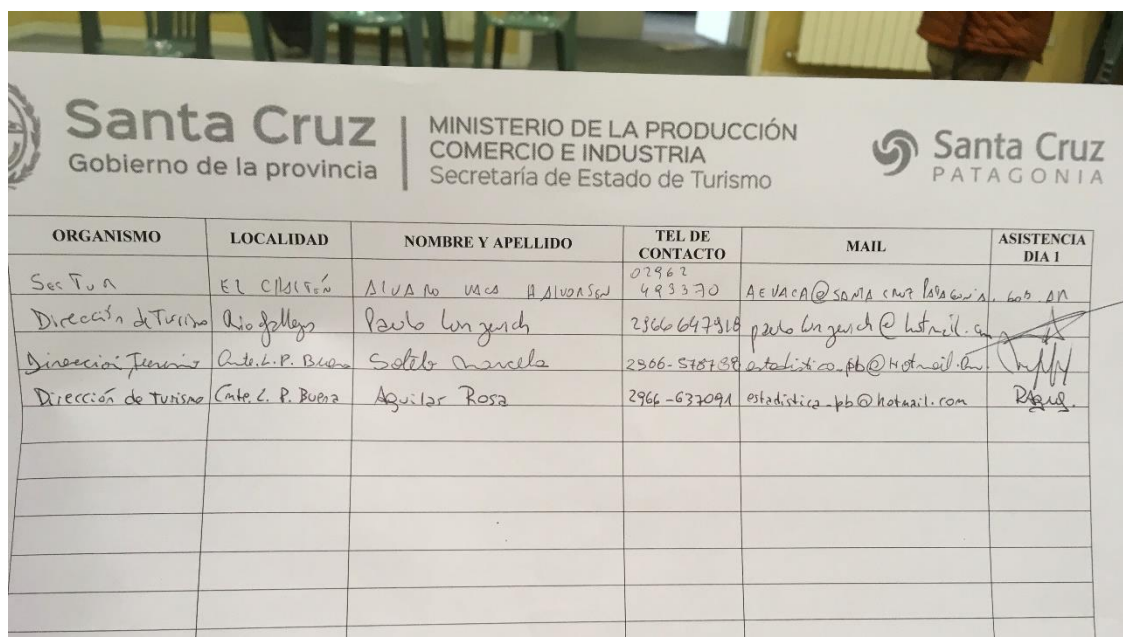 Santa Cruz
Gobierno de la provincia
MINISTERIO DE LA PRODUCCIÓN
COMERCIO E INDUSTRIA
Secretaría de Estado de Turismo
Santa Cruz
PATAGONIA
ORGANISMO LOCALIDAD NOMBRE Y APELLIDO TEL DE CONTACTO MAIL ASISTENCIA DIA 1
SecTur EL CHALTÉN ALVARO VACA HALVORSEN 02962 493370 AEVACA@SANTACRUZPATAGONIA.GOB.AR
Dirección de Turismo Rio Gallegos Paulo
Dirección Turismo Cmte. L. P. Buena Sotelo Marcela estadistica_pb@Hotmail.
Dirección de Turismo Cmte. L. P. Buena Aguilar Rosa 2966-637091 estadistica_pb@hotmail.com